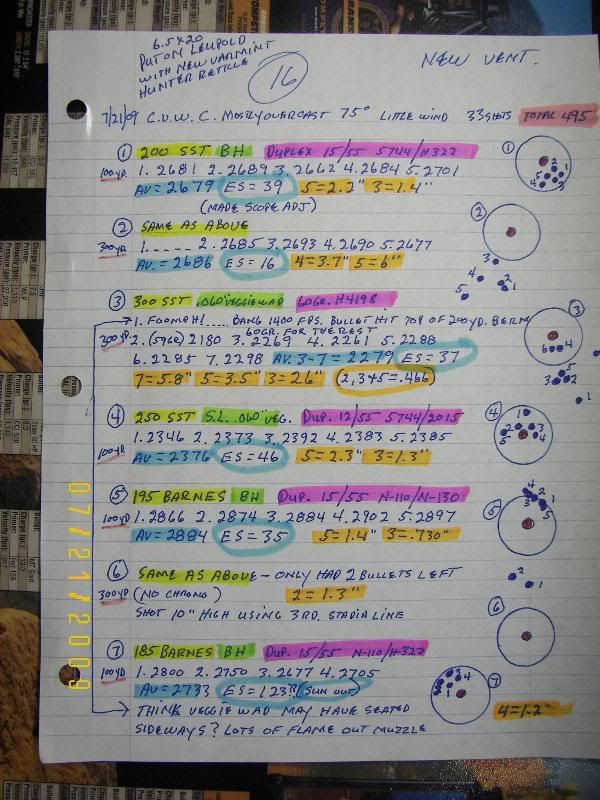 6.5X20
PUT ON LEUPOLD
WITH NEW VARMINT
HUNTER RETICLE
16
NEW VENT.
7/21/09 C.V.W.C. MOSTLY OVERCAST 75° LITTLE WIND 33 SHOTS TOTAL 495
① 200 SST BH DUPLEX 15/55 5744/H322
100 YD 1. 2681 2. 2689 3. 2662 4. 2684 5. 2701
AV = 2679 ES = 39 5 = 2.2" 3 = 1.4"
(MADE SCOPE ADJ)
② SAME AS ABOVE
300 YD 1. ----- 2. 2685 3. 2693 4. 2690 5. 2677
AV. = 2686 ES = 16 4 = 3.7" 5 = 6"
③ 300 SST .060" VEGGIE WAD 60GR. H4198
1. FOONGH!.... BANG 1400 FPS. BULLET HIT TOP OF 200 YD. BERM
60GR. FOR THE REST
300 YD 2. (59GR) 2180 3. 2269 4. 2261 5. 2288
6. 2285 7. 2298 AV. 3-7 = 2279 ES = 37
7 = 5.8" 5 = 3.5" 3 = 2.6" (2,3+5 = .466)
④ 250 SST S.L. .060" VEG. DUP. 12/55 5744/2015
100 YD 1. 2346 2. 2373 3. 2392 4. 2383 5. 2385
AV = 2376 ES = 46 5 = 2.3" 3 = 1.3"
⑤ 195 BARNES BH DUP. 15/55 N-110/N-130
100 YD 1. 2866 2. 2874 3. 2884 4. 2902 5. 2897
AV = 2884 ES = 35 5 = 1.4" 3 = .730"
⑥ SAME AS ABOVE - ONLY HAD 2 BULLETS LEFT
300 YD (NO CHRONO) 2 = 1.3"
SHOT 10" HIGH USING 3RD. STADIA LINE
⑦ 185 BARNES BH DUP. 15/55 N-110/H-322
100 YD 1. 2800 2. 2750 3. 2677 4. 2705
AV = 2733 ES = 123?? (SUN OUT) 4 = 1.2"
THINK VEGGIE WAD MAY HAVE SEATED
SIDEWAYS? LOTS OF FLAME OUT MUZZLE
07/21/2009